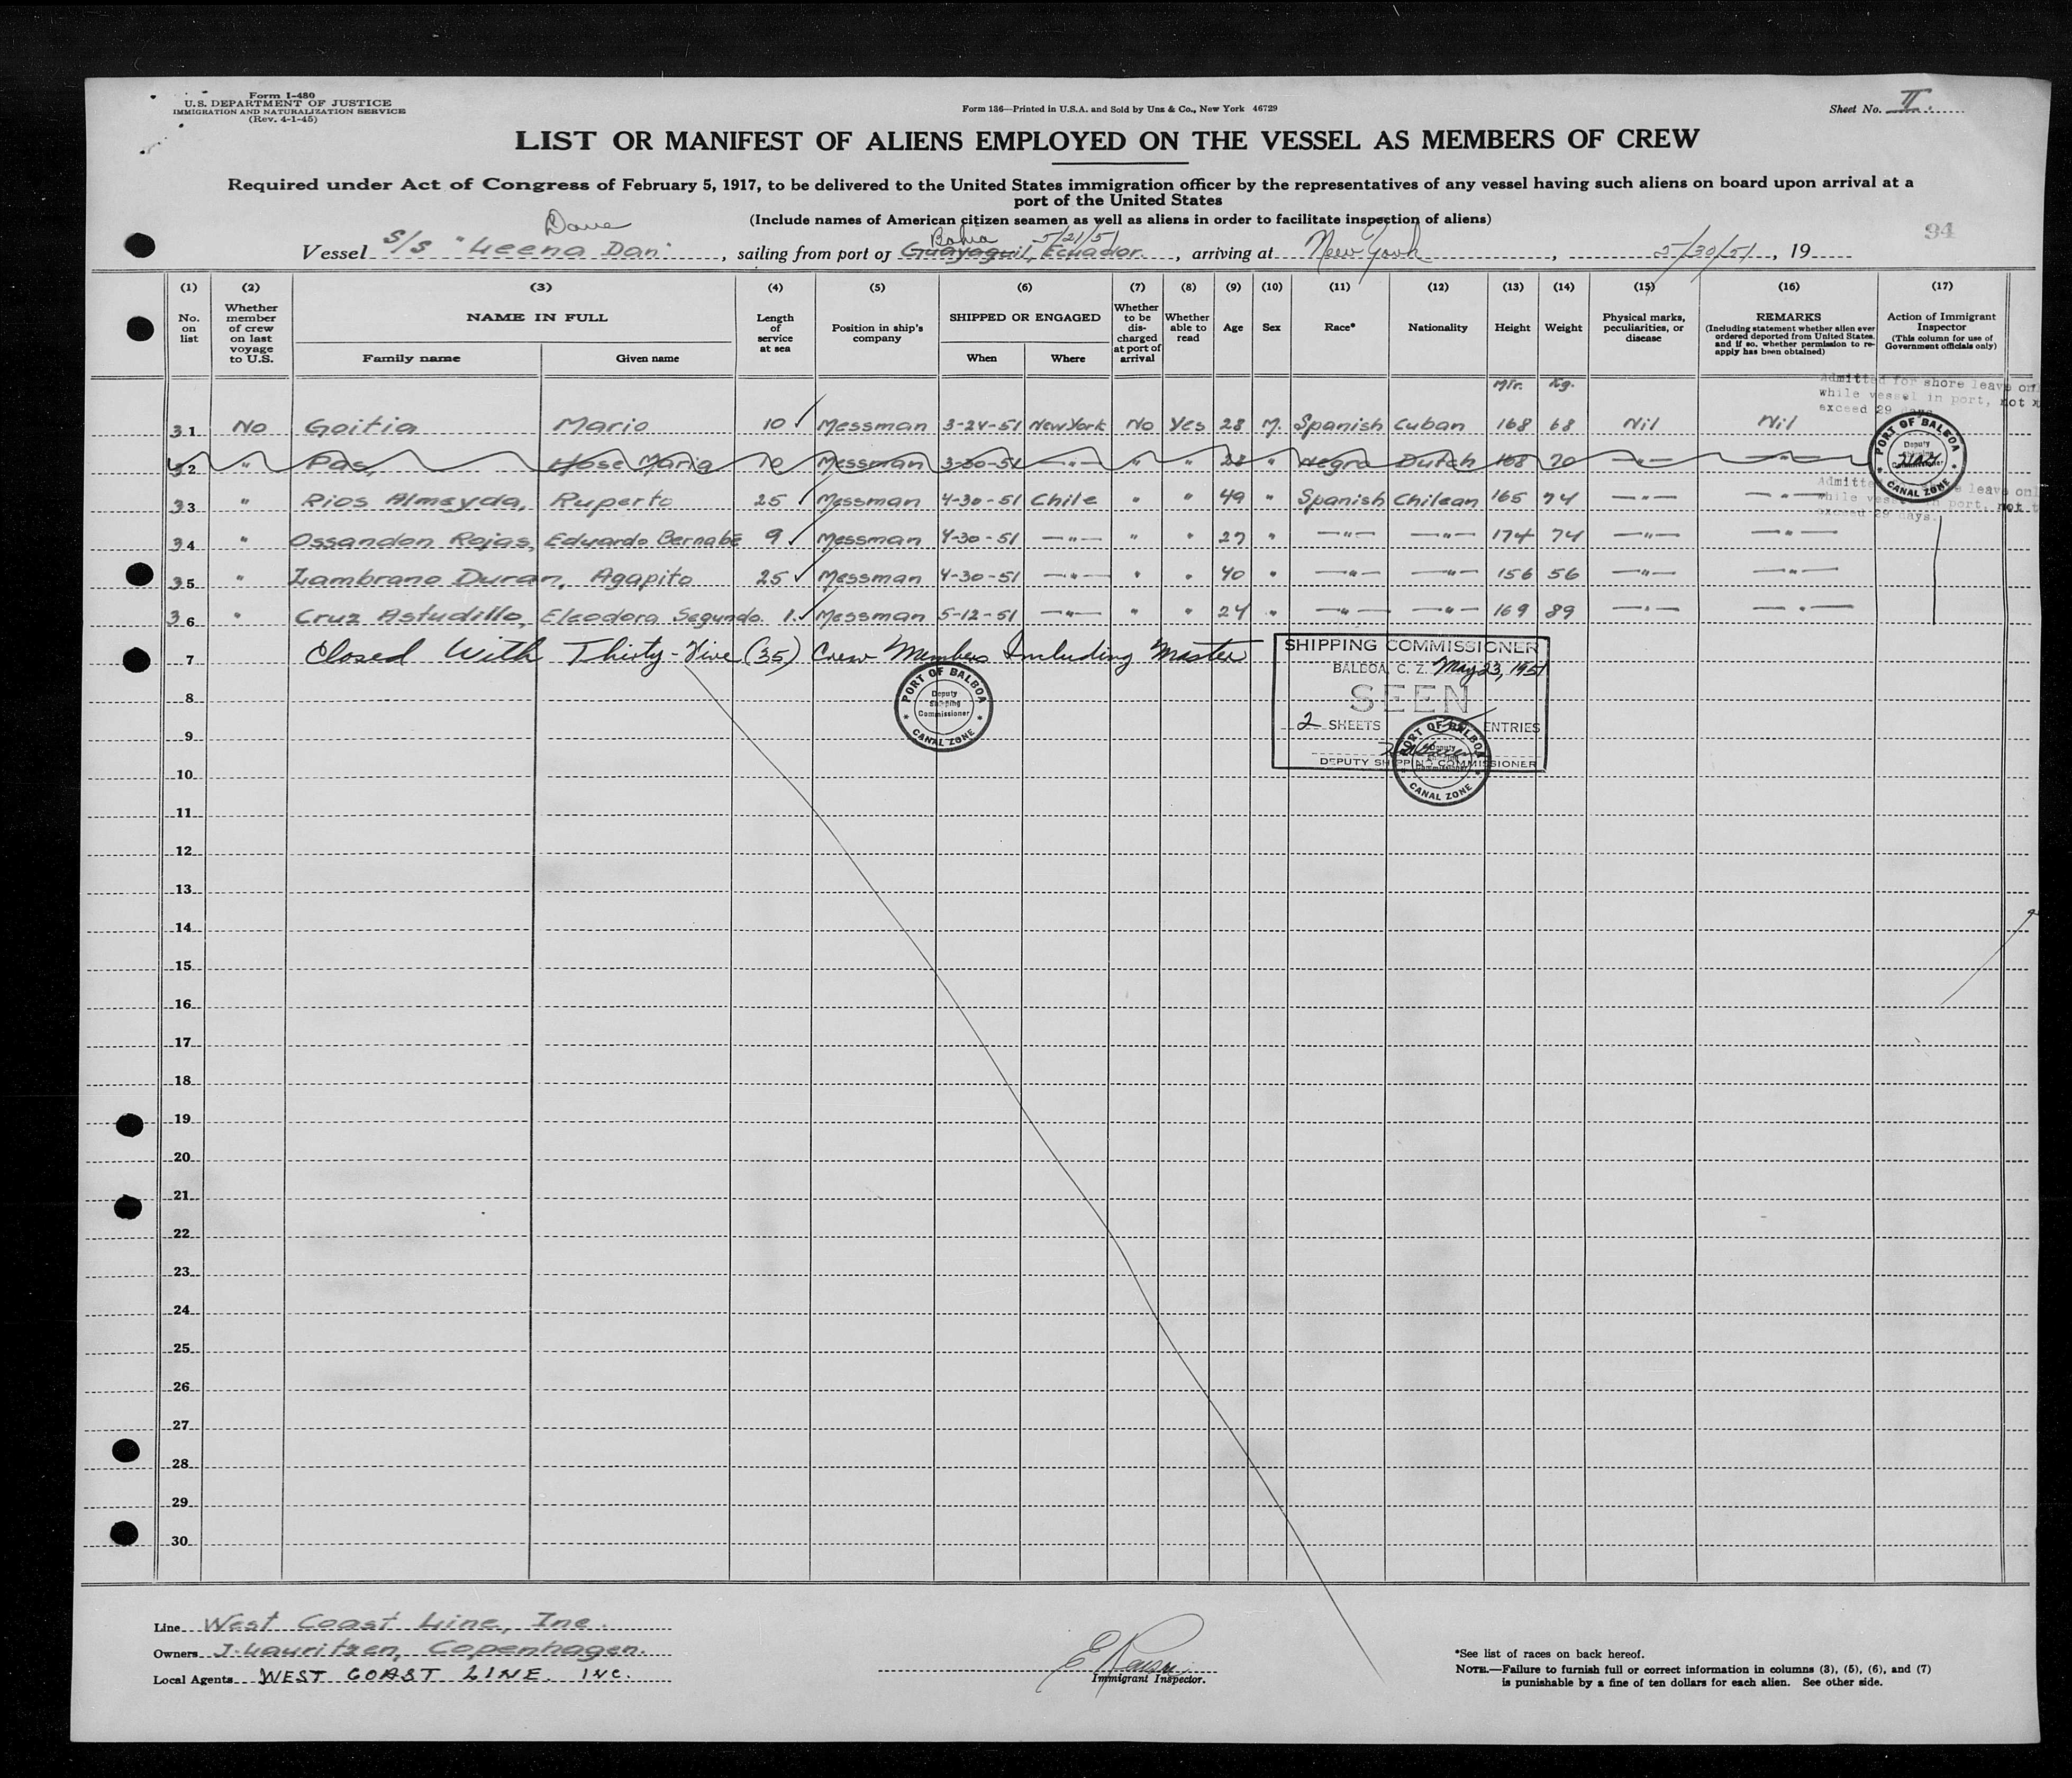 Form I-480
U.S. DEPARTMENT OF JUSTICE
IMMIGRATION AND NATURALIZATION SERVICE
(Rev. 4-1-45)
Form 136—Printed in U.S.A. and Sold by Unz & Co., New York 46729
Sheet No. II
LIST OR MANIFEST OF ALIENS EMPLOYED ON THE VESSEL AS MEMBERS OF CREW
Required under Act of Congress of February 5, 1917, to be delivered to the United States immigration officer by the representatives of any vessel having such aliens on board upon arrival at a
port of the United States
(Include names of American citizen seamen as well as aliens in order to facilitate inspection of aliens)
94
Bahia 5/21/51
Vessel S/S "Leena Dan", sailing from port of Guayaquil, Ecuador, arriving at New York, 5/30/51, 19
(1) (2) (3) (4) (5) (6) (7) (8) (9) (10) (11) (12) (13) (14) (15) (16) (17)
No. on list
Whether member of crew on last voyage to U.S.
NAME IN FULL
Family name
Given name
Length of service at sea
Position in ship's company
SHIPPED OR ENGAGED
When
Where
Whether to be discharged at port of arrival
Whether able to read
Age
Sex
Race*
Nationality
Height
Weight
Physical marks, peculiarities, or disease
REMARKS
(Including statement whether alien ever ordered deported from United States, and if so, whether permission to reapply has been obtained)
Action of Immigrant Inspector
(This column for use of Government officials only)
Mtr. Kg.
Admitted for shore leave on
while vessel in port, not
exceed 29 days
31 No Goitia Mario 10 ✓ Messman 3-24-51 New York No Yes 28 M. Spanish Cuban 168 68 Nil Nil
32 " Pas, Jose Maria 10 Messman 3-30-51 —"— " " 28 " Negro Dutch 168 70 —"— —"—
PORT OF BALBOA
Deputy Shipping Commissioner
CANAL ZONE
33 " Rios Almeyda, Ruperto 25 ✓ Messman 4-30-51 Chile " " 49 " Spanish Chilean 165 74 —"— —"—
Admitted leave on
while vessel in port, not t
exceed 29 days.
34 " Ossandon Rojas, Eduardo Bernabe 9 ✓ Messman 4-30-51 —"— " " 27 " —"— —"— 174 74 —"— —"—
35 " Zambrano Duran, Agapito 25 ✓ Messman 4-30-51 —"— " " 40 " —"— —"— 156 56 —"— —"—
36 " Cruz Astudillo, Eleodoro Segundo 1 ✓ Messman 5-12-51 —"— " " 24 " —"— —"— 169 89 —"— —"—
7 Closed With Thirty-Five (35) Crew Members Including Master
PORT OF BALBOA
Deputy Shipping Commissioner
CANAL ZONE
SHIPPING COMMISSIONER
BALBOA, C. Z. May 23, 1951
SEEN
2 SHEETS ENTRIES
DEPUTY SHIPPING COMMISSIONER
PORT OF BALBOA
Deputy Shipping Commissioner
CANAL ZONE
8
9
10
11
12
13
14
15
16
17
18
19
20
21
22
23
24
25
26
27
28
29
30
Line West Coast Line, Inc.
Owners J. Lauritzen, Copenhagen.
Local Agents WEST COAST LINE INC.
Immigrant Inspector.
*See list of races on back hereof.
NOTE.—Failure to furnish full or correct information in columns (3), (5), (6), and (7)
is punishable by a fine of ten dollars for each alien. See other side.